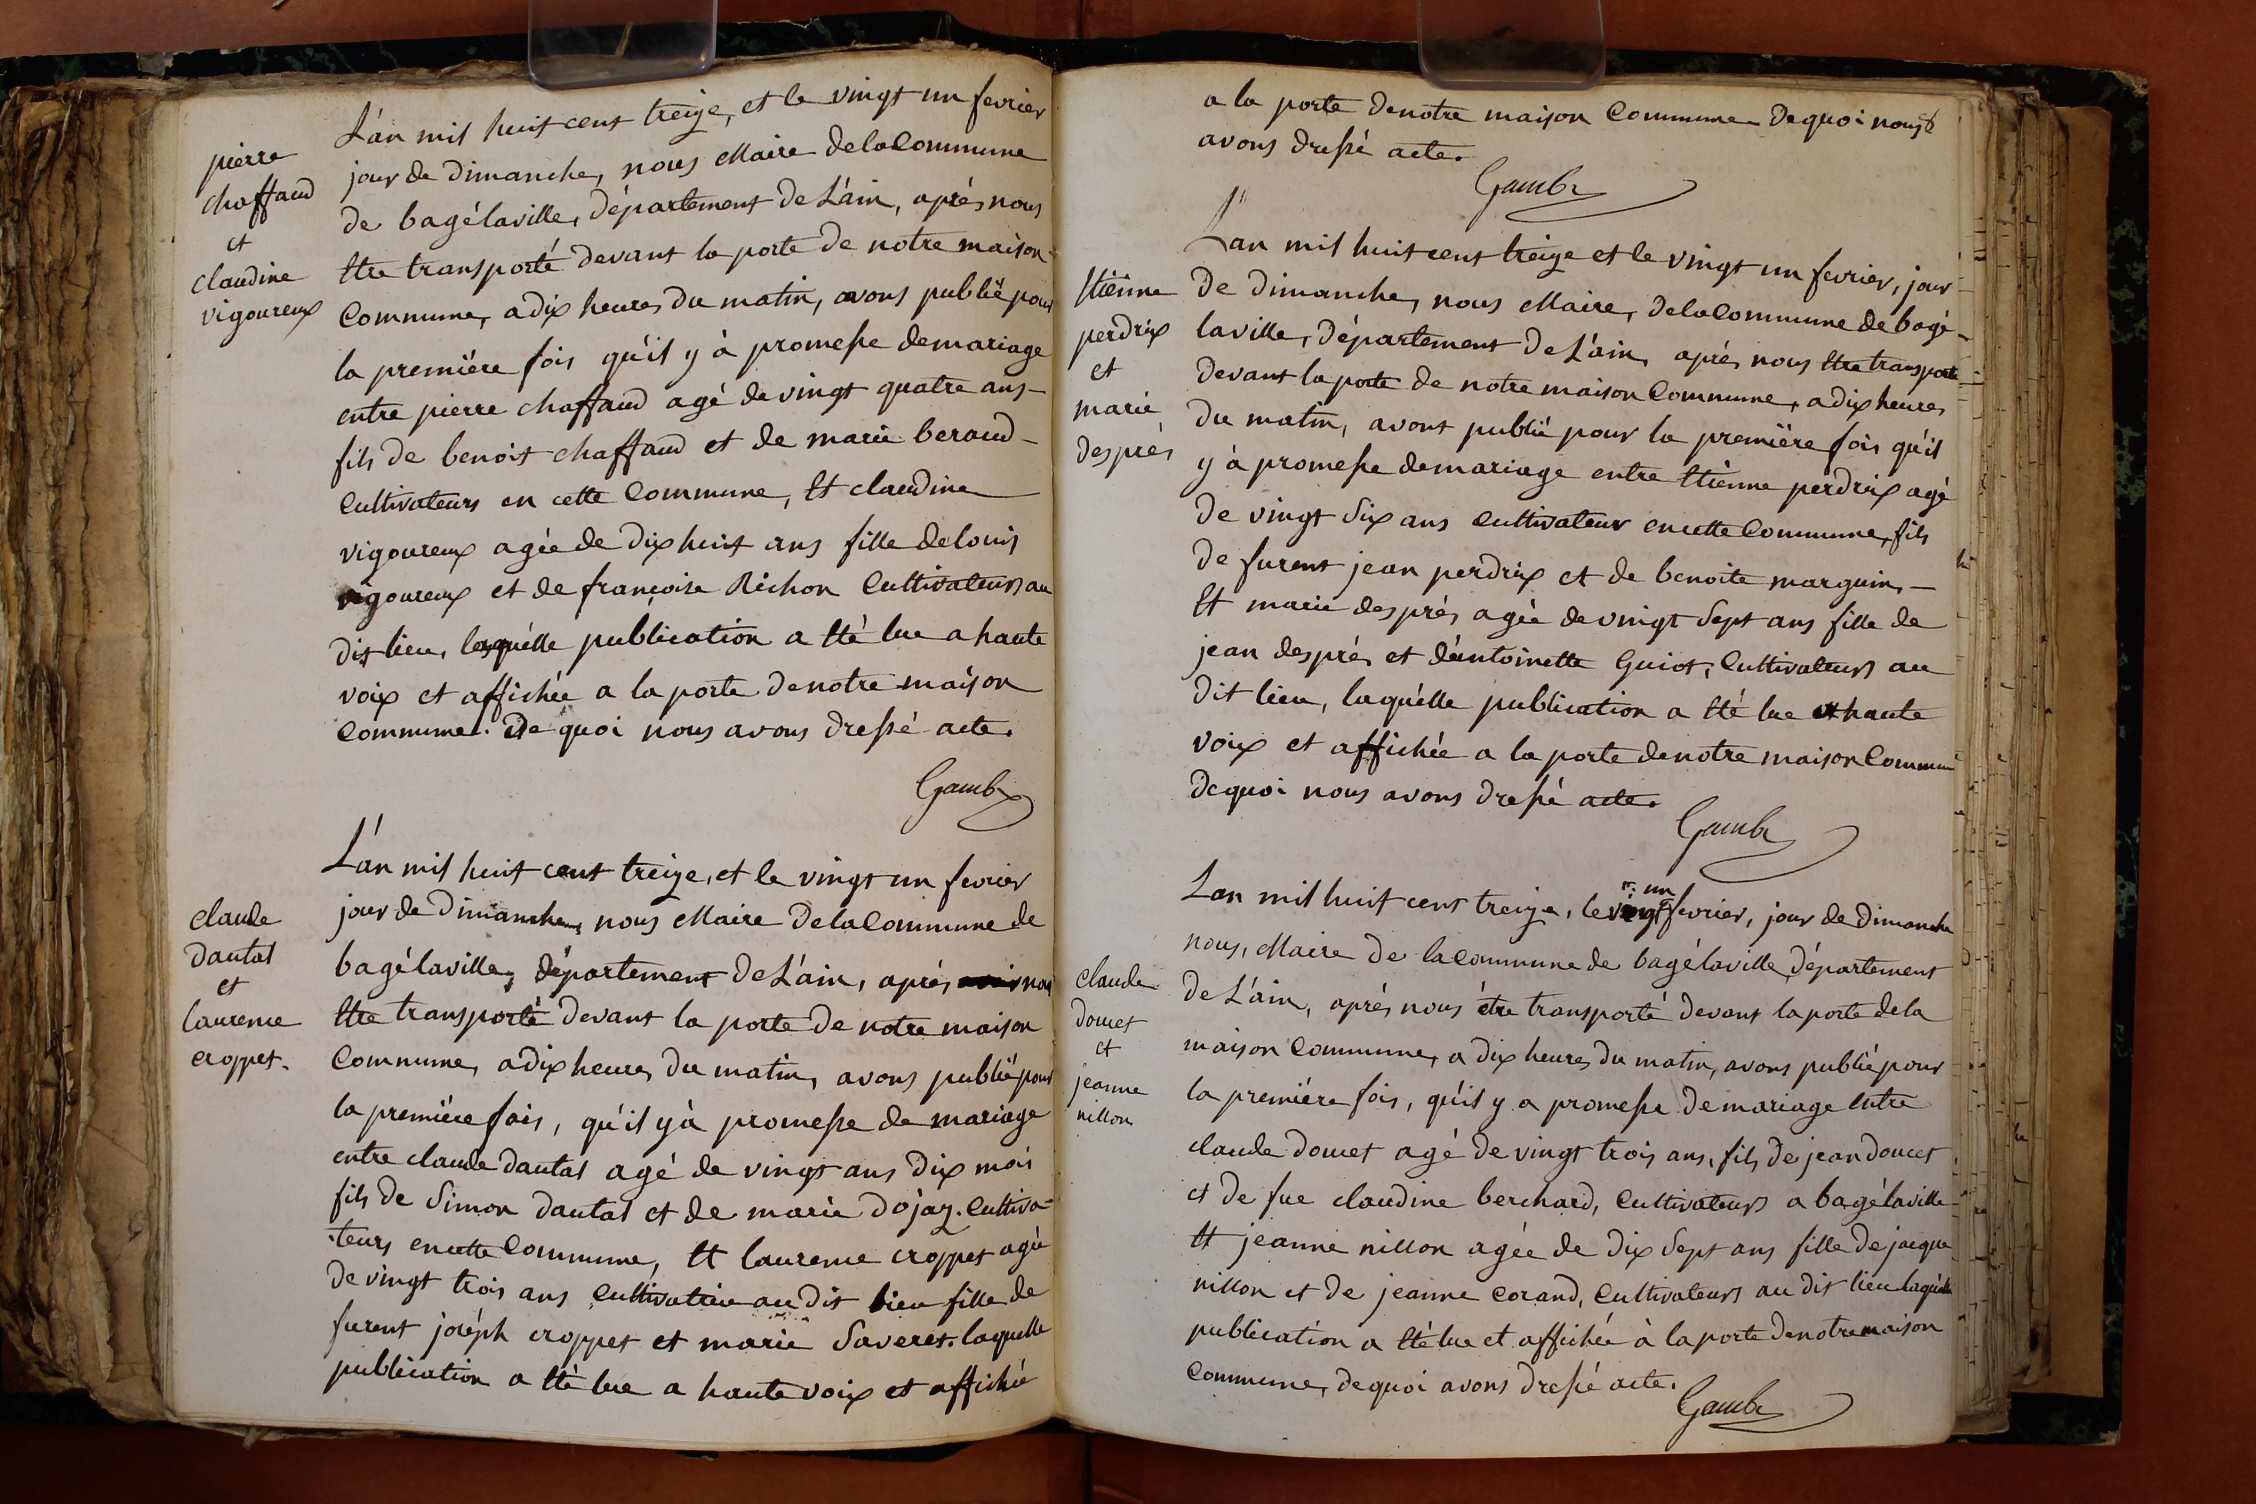 pierre
chaffaud
et
claudine
vigoureux
L'an mil huit cent treize, et le vingt un fevrier
jour de dimanche, nous Maire de la Commune
de bagélaville, département de L'ain, aprés nous
Etre transporté devant la porte de notre maison
Commune, a dix heures du matin, avons publié pour
la premiére fois qu'il y à promesse de mariage
entre pierre chaffaud agé de vingt quatre ans
fils de benoit chaffaud et de marie beraud
Cultivateurs en cette Commune, Et claudine
vigoureux agée de dix huit ans fille de louis
vigoureux et de françoise Richon Cultivateurs au
dit lieu, laquélle publication a Eté lue a haute
voix et affichée a la porte de notre maison
Commune. De quoi nous avons dressé acte.
Gambr
claude
dautal
et
laurence
croppet.
L'an mil huit cent treize, et le vingt un fevrier
jour de dimanche, nous Maire de la Commune de
bagélaville, département de L'ain, aprés nous
Etre transporté devant la porte de notre maison
Commune, a dix heures du matin, avons publié pour
la premiére fois, qu'il y à promesse de mariage
entre claude dautal agé de vingt ans dix mois
fils de Simon dautal et de marie dojaz. Cultiva-
-teurs en cette Commune, Et laurence croppet agée
de vingt trois ans Cultivatrice au dit lieu fille de
furent joséph croppet et marie Saveret. laquelle
publication a Eté lue a haute voix et affichée
a la porte de notre maison Commune de quoi nous
avons dressé acte.
Gambr
Etienne
perdrix
et
marie
després
L'an mil huit cent treize et le vingt un fevrier, jour
de dimanche, nous Maire, de la Commune de bagé-
laville, département de L'ain, aprés nous Etre transporté
devant la porte de notre maison Commune, a dix heures
du matin, avons publié pour la premiére fois qu'il
y à promesse de mariage entre Etienne perdrix agé
de vingt Six ans Cultivateur en cette Commune, fils
de furent jean perdrix et de benoite marguin,
Et marie després agée de vingt Sept ans fille de
jean després et d'antoinette Guiot, Cultivateurs au
dit lieu, laquélle publication a Eté lue a haute
voix et affichée a la porte de notre maison Commune
de quoi nous avons dressé acte.
Gambr
claude
doucet
et
jeanne
nillon
un
Lan mil huit cent treize, le vingt fevrier, jour de dimanche
nous, Maire de la commune de bagélaville, département
de L'ain, aprés nous être transporté devant la porte de la
maison Commune, a dix heures du matin, avons publié pour
la premiére fois, qu'il y a promesse de mariage Entre
claude doucet agé de vingt trois ans, fils de jean doucet
et de fue claudine berchard, Cultivateurs a bagélaville
Et jeanne nillon agée de dix Sept ans fille de jacque
nillon et de jeanne Corand, Cultivateurs au dit lieu laquélle
publication a Eté lue et affichée à la porte de notre maison
Commune, de quoi avons dressé acte.
Gambr